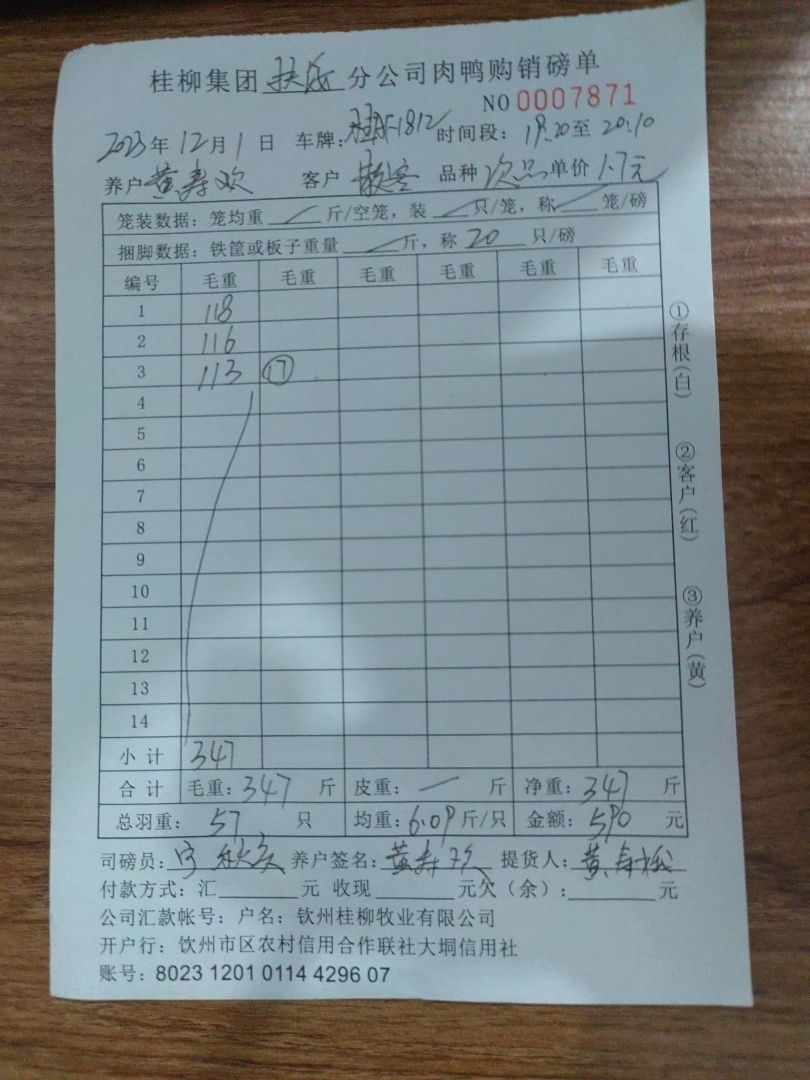 桂柳集团 扶绥 分公司肉鸭购销磅单
NO 0007871
2023年12月1日 车牌: 1812 时间段: 19.20至20:10
养户 黄寿欢 客户 散客 品种 次品 单价 1.7元
笼装数据: 笼均重 / 斤/空笼, 装 / 只/笼, 称 / 笼/磅
捆脚数据: 铁筐或板子重量 / 斤, 称 20 只/磅
编号 毛重 毛重 毛重 毛重 毛重 毛重
1 118
2 116
3 113 ⑰
4
5
6
7
8
9
10
11
12
13
14
小计 347
合计 毛重: 347 斤 皮重: 一 斤 净重: 347 斤
总羽重: 57 只 均重: 6.09 斤/只 金额: 590 元
司磅员: 养户签名: 黄寿欢 提货人: 黄
付款方式: 汇 元 收现 元欠(余): 元
公司汇款帐号: 户名: 钦州桂柳牧业有限公司
开户行: 饮州市区农村信用合作联社大垌信用社
账号: 8023 1201 0114 4296 07
①存根(白)
②客户(红)
③养户(黄)